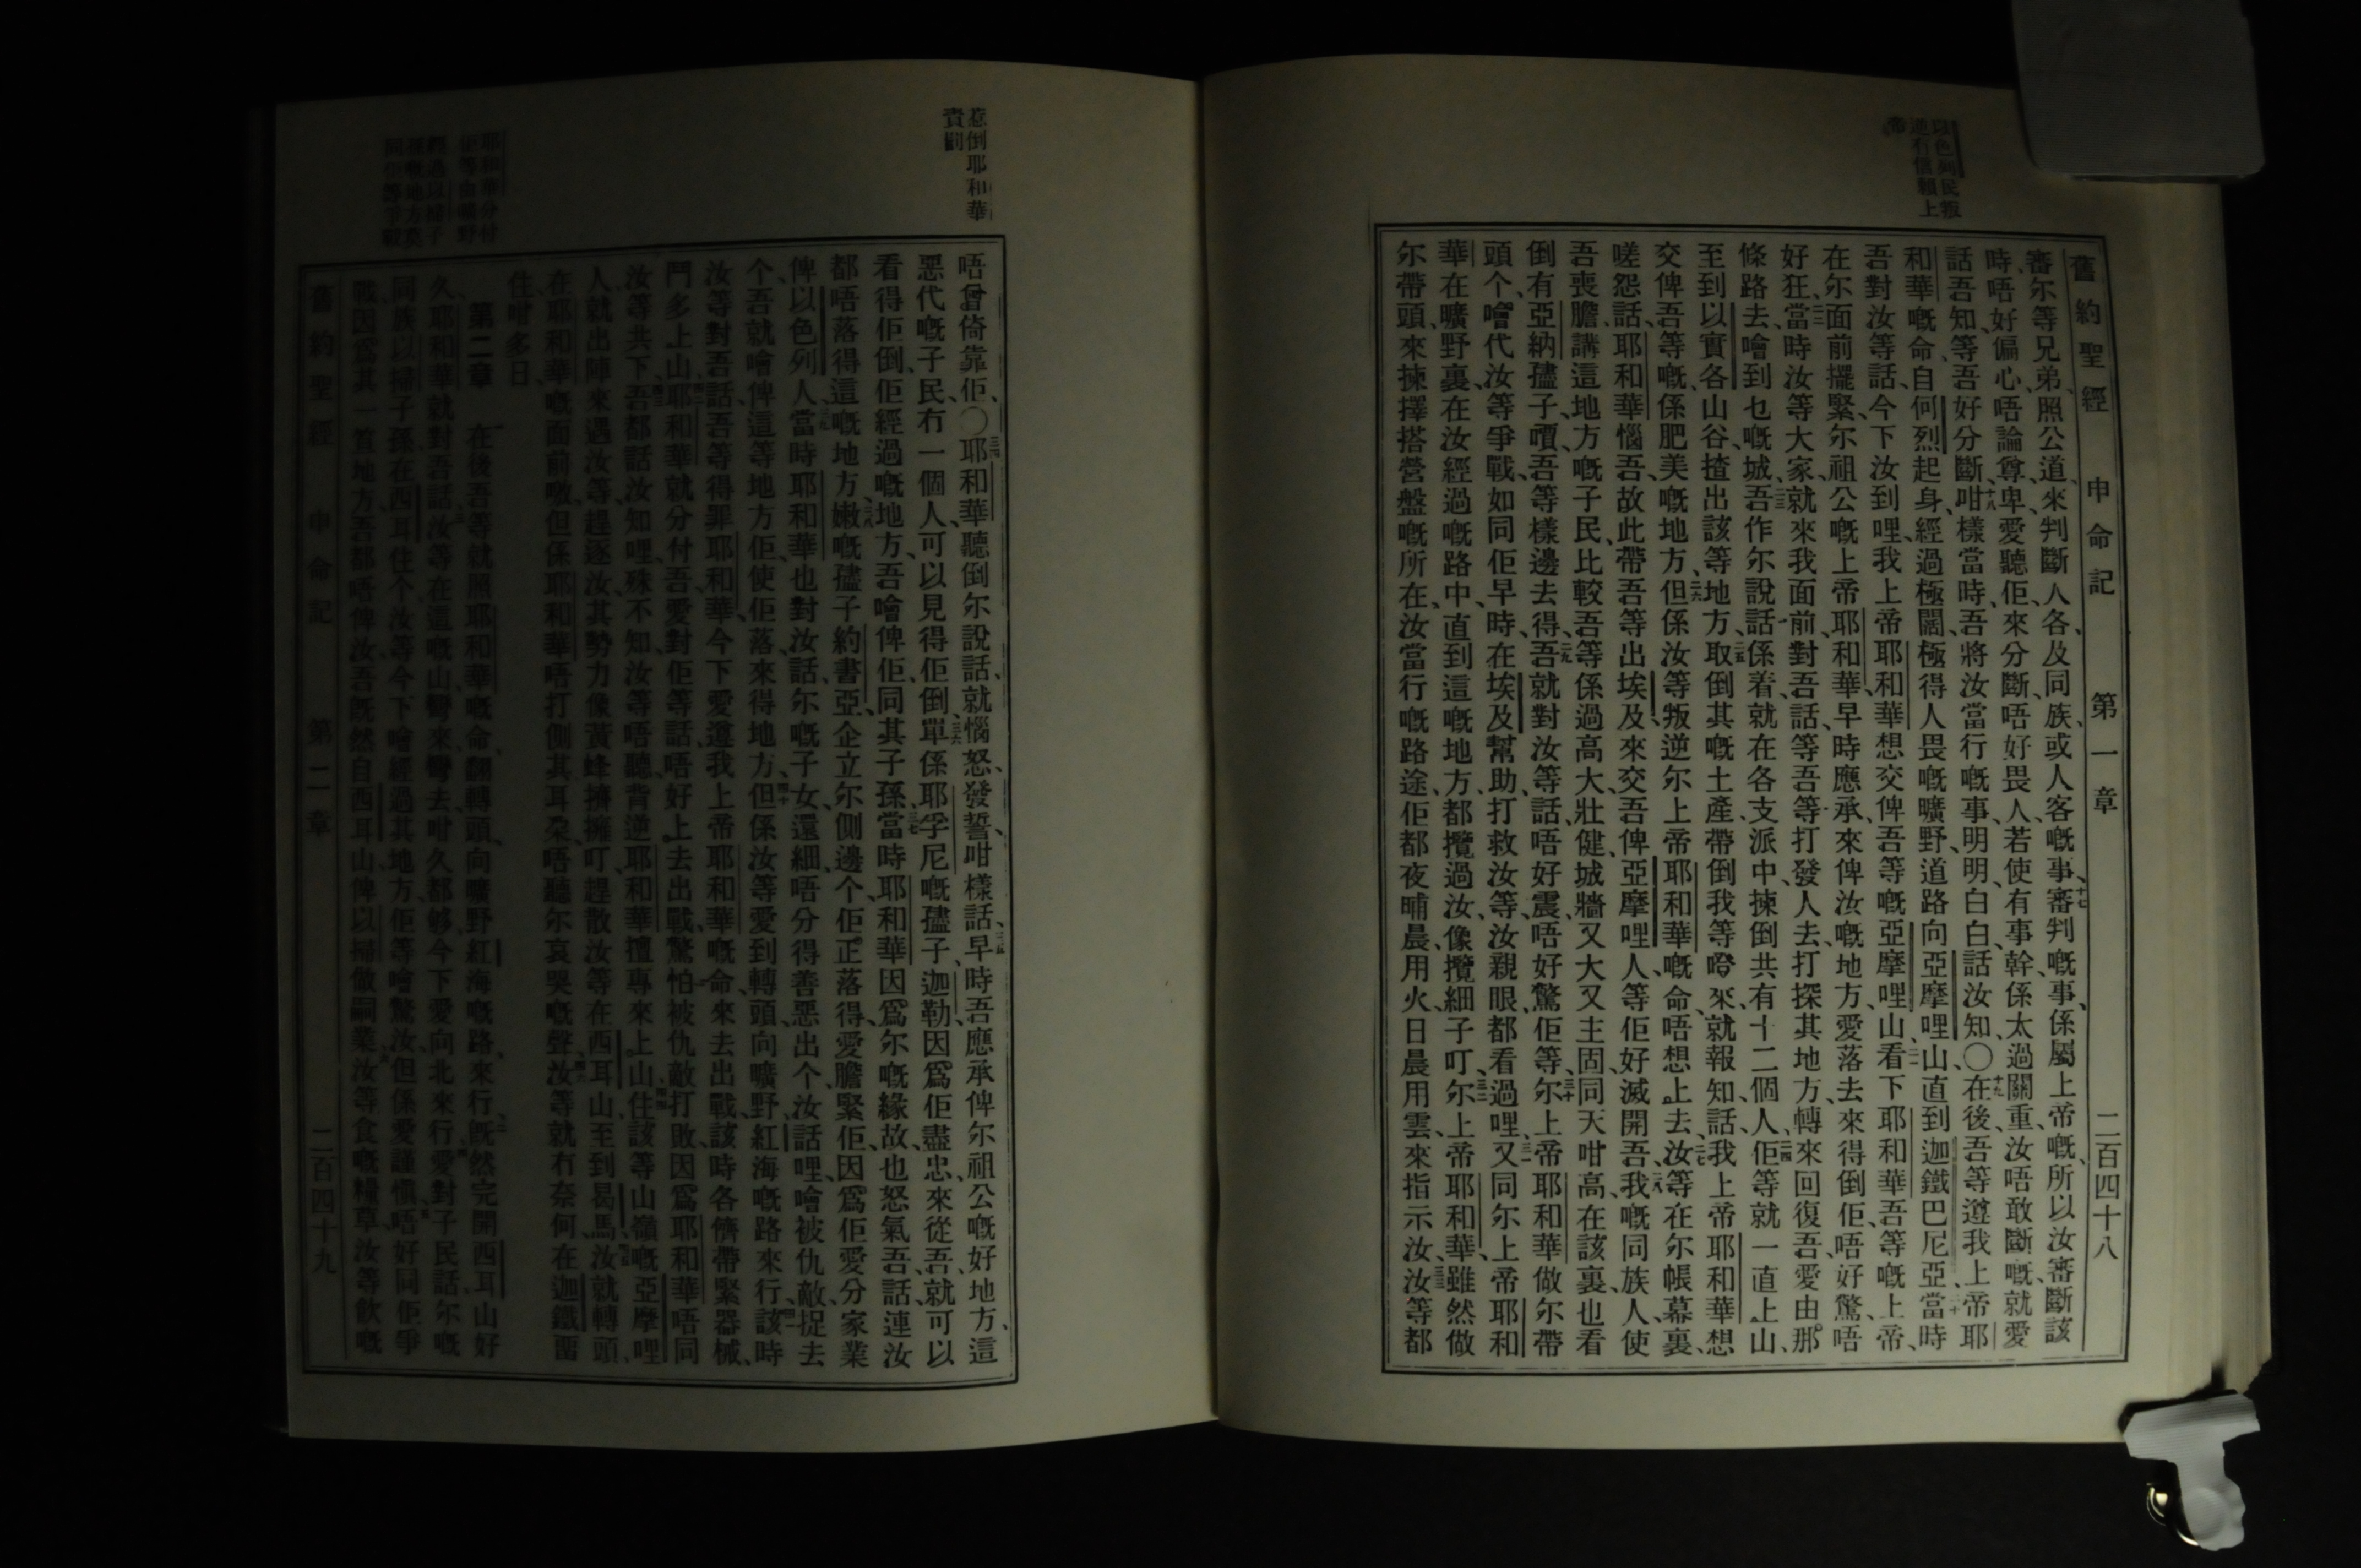 舊約聖經 申命記 第一章 二百四十八
以色列民叛
逆冇信賴上
帝
審尔等兄弟、照公道、來判斷人各、及同族、或人客嘅事、十七審判嘅事、係屬上帝嘅、所以汝審斷該
時、唔好偏心、唔論尊卑、愛聽佢、來分斷、唔好畏人、若使有事幹、係太過關重、汝唔敢斷嘅、就愛
話吾知、等吾好分斷、十八咁樣當時、吾將汝當行嘅事、明明白白、話汝知、〇十九在後、吾等遵我上帝耶
和華嘅命、自何烈起身、經過極闊、極得人畏嘅曠野、道路向亞摩哩山、直到迦鐵巴尼亞、二十當時
吾對汝等話、今下汝到哩、我上帝耶和華、想交俾吾等嘅亞摩哩山、二一看下耶和華吾等嘅上帝、
在尔面前擺緊、尔祖公嘅上帝、耶和華、早時應承來俾汝嘅地方、愛落去來得倒佢、唔好驚、唔
好狂、二二當時汝等大家、就來我面前、對吾話、等吾等打發人去、打探其地方、轉來回復吾、愛由那
條路去、噲到乜嘅城、二三吾作尔說話係着、就在各支派中、揀倒共有十二個人、二四佢等就一直上山、
至到以實各山谷、揸出該等地方、二五取倒其嘅土產、帶倒我等嗒來、就報知話、我上帝耶和華、想
交俾吾等嘅、係肥美嘅地方、二六但係汝等叛逆尔上帝耶和華嘅命、唔想上去、二七汝等在尔帳幕裏、
嗟怨話、耶和華惱吾、故此帶吾等出埃及、來交吾俾亞摩哩人、等佢好滅開吾、二八我嘅同族人、使
吾喪膽、講這地方嘅子民、比較吾等係過高大、壯健、城牆又大、又主固、同天咁高、在該裏、也看
倒有亞納孻子、嘪、吾等樣邊去得、二九吾就對汝等話、唔好震、唔好驚佢等、三十尔上帝耶和華做尔帶
頭个、噲代汝等爭戰、如同佢早時、在埃及幫助、打救汝等、汝親眼都看過哩、三一又同尔上帝耶和
華在曠野裏、在汝經過嘅路中、直到這嘅地方、都攬過汝、像攬細子叮、三二尔上帝耶和華、雖然做
尔帶頭、來揀擇搭營盤嘅所在、汝當行嘅路途、佢都夜晡晨、用火、日晨用雲、來指示汝、三三汝等都
惹倒耶和華
責罰
唔曾倚靠佢、〇三四耶和華聽倒尔說話、就惱怒、發誓、咁樣話、三五早時吾應承俾尔祖公嘅好地方、這
惡代嘅子民、冇一個人、可以見得佢倒、三六單係耶孚尼嘅孻子、迦勒、因爲佢盡忠、來從吾、就可以
看得佢倒、佢經過嘅地方、吾噲俾佢同其子孫、三七當時耶和華、因爲尔嘅緣故、也怒氣吾、話、連汝
都唔落得這嘅地方、三八嫩嘅孻子約書亞、企立尔側邊个、佢正落得、愛膽緊佢、因爲佢愛分家業
俾以色列人、三九當時耶和華也對汝話、尔嘅子女、還細、唔分得善惡出个、汝話哩、噲被仇敵、捉去
个、吾就噲俾這等地方佢、使佢落來得地方、四十但係汝等愛到轉頭、向曠野、紅海嘅路來行、四一該時
汝等對吾話、吾等得罪耶和華、今下愛遵我上帝耶和華嘅命、來去出戰、該時各儕帶緊器械、
鬥多上山、四二耶和華就分付吾、愛對佢等話、唔好上去出戰、驚怕被仇敵打敗、因爲耶和華唔同
汝等共下、四三吾都話汝知哩、殊不知、汝等唔聽、背逆耶和華、擅專來上山、四四住該等山嶺嘅亞摩哩
人、就出陣來遇汝等、趕逐汝、其勢力像黃蜂擠擁叮、趕散汝等在西耳山、至到曷馬、四五汝就轉頭、
在耶和華嘅面前噭、但係耶和華唔打側其耳朶、唔聽尔哀哭嘅聲、四六汝等就冇奈何、在迦鐵畱
住咁多日、
耶和華分付
佢等由曠野
經過以掃子
孫嘅地方莫
同佢等爭戰
第二章 一在後吾等就照耶和華嘅命、翻轉頭、向曠野紅海嘅路、來行、二旣然完開西耳山好
久、耶和華就對吾話、三汝等在這嘅山、彎來彎去、咁久都够、今下愛向北來行、四愛對子民話、尔嘅
同族以掃子孫、在西耳住个、汝等今下噲經過其地方、佢等噲驚汝、但係愛謹愼、五唔好同佢爭
戰、因爲其一笪地方、吾都唔俾汝、吾旣然自西耳山俾以掃做嗣業、六汝等食嘅糧草、汝等飲嘅
舊約聖經 申命記 第二章 二百四十九